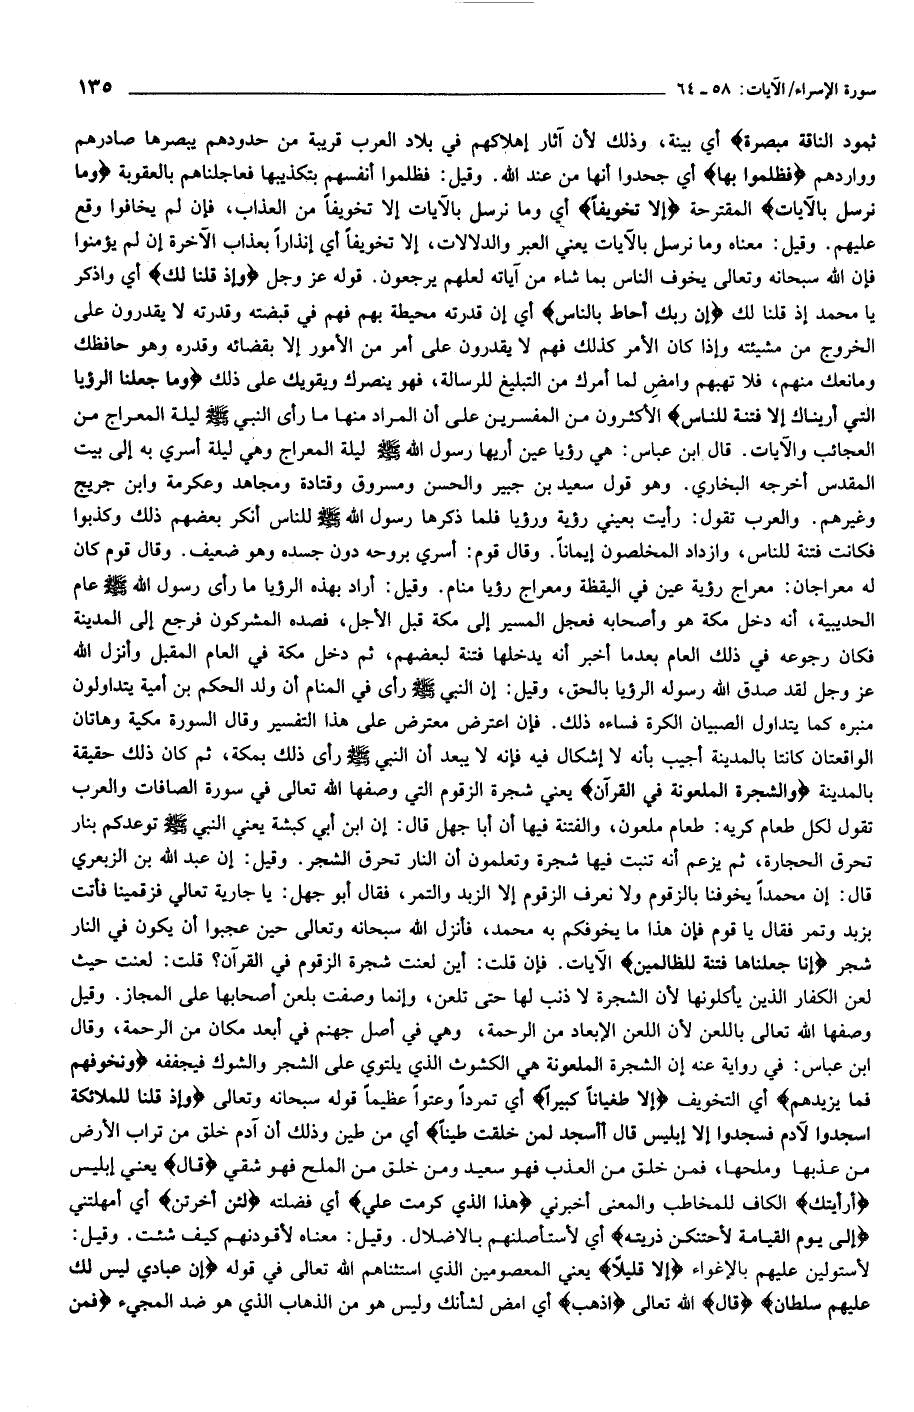 سورة الإسراء/الآيات: ٥٨ ـ ٦٤ ١٣٥
ثمود الناقة مبصرة﴾ أي بينة، وذلك لأن آثار إهلاكهم في بلاد العرب قريبة من حدودهم يبصرها صادرهم
وواردهم ﴿فظلموا بها﴾ أي جحدوا أنها من عند الله. وقيل: فظلموا أنفسهم بتكذيبها فعاجلناهم بالعقوبة ﴿وما
نرسل بالآيات﴾ المقترحة ﴿إلا تخويفاً﴾ أي وما نرسل بالآيات إلا تخويفاً من العذاب، فإن لم يخافوا وقع
عليهم. وقيل: معناه وما نرسل بالآيات يعني العبر والدلالات، إلا تخويفاً أي إنذاراً بعذاب الآخرة إن لم يؤمنوا
فإن الله سبحانه وتعالى يخوف الناس بما شاء من آياته لعلهم يرجعون. قوله عز وجل ﴿وإذ قلنا لك﴾ أي واذكر
يا محمد إذ قلنا لك ﴿إن ربك أحاط بالناس﴾ أي إن قدرته محيطة بهم فهم في قبضته وقدرته لا يقدرون على
الخروج من مشيئته وإذا كان الأمر كذلك فهم لا يقدرون على أمر من الأمور إلا بقضائه وقدره وهو حافظك
ومانعك منهم، فلا تهبهم وامض لما أمرك من التبليغ للرسالة، فهو ينصرك ويقويك على ذلك ﴿وما جعلنا الرؤيا
التي أريناك إلا فتنة للناس﴾ الأكثرون من المفسرين على أن المراد منها ما رأى النبي ﷺ ليلة المعراج من
العجائب والآيات. قال ابن عباس: هي رؤيا عين أريها رسول الله ﷺ ليلة المعراج وهي ليلة أسري به إلى بيت
المقدس أخرجه البخاري. وهو قول سعيد بن جبير والحسن ومسروق وقتادة ومجاهد وعكرمة وابن جريج
وغيرهم. والعرب تقول: رأيت بعيني رؤية ورؤيا فلما ذكرها رسول الله ﷺ للناس أنكر بعضهم ذلك وكذبوا
فكانت فتنة للناس، وازداد المخلصون إيماناً. وقال قوم: أسري بروحه دون جسده وهو ضعيف. وقال قوم كان
له معراجان: معراج رؤية عين في اليقظة ومعراج رؤيا منام. وقيل: أراد بهذه الرؤيا ما رأى رسول الله ﷺ عام
الحديبية، أنه دخل مكة هو وأصحابه فعجل المسير إلى مكة قبل الأجل، فصده المشركون فرجع إلى المدينة
فكان رجوعه في ذلك العام بعدما أخبر أنه يدخلها فتنة لبعضهم، ثم دخل مكة في العام المقبل وأنزل الله
عز وجل لقد صدق الله رسوله الرؤيا بالحق، وقيل: إن النبي ﷺ رأى في المنام أن ولد الحكم بن أمية يتداولون
منبره كما يتداول الصبيان الكرة فساءه ذلك. فإن اعترض معترض على هذا التفسير وقال السورة مكية وهاتان
الواقعتان كانتا بالمدينة أجيب بأنه لا إشكال فيه فإنه لا يبعد أن النبي ﷺ رأى ذلك بمكة، ثم كان ذلك حقيقة
بالمدينة ﴿والشجرة الملعونة في القرآن﴾ يعني شجرة الزقوم التي وصفها الله تعالى في سورة الصافات والعرب
تقول لكل طعام كريه: طعام ملعون، والفتنة فيها أن أبا جهل قال: إن ابن أبي كبشة يعني النبي ﷺ توعدكم بنار
تحرق الحجارة، ثم يزعم أنه تنبت فيها شجرة وتعلمون أن النار تحرق الشجر. وقيل: إن عبد الله بن الزبعري
قال: إن محمداً يخوفنا بالزقوم ولا نعرف الزقوم إلا الزبد والتمر، فقال أبو جهل: يا جارية تعالي فزقمينا فأتت
بزبد وتمر فقال يا قوم فإن هذا ما يخوفكم به محمد، فأنزل الله سبحانه وتعالى حين عجبوا أن يكون في النار
شجر ﴿إنا جعلناها فتنة للظالمين﴾ الآيات. فإن قلت: أين لعنت شجرة الزقوم في القرآن؟ قلت: لعنت حيث
لعن الكفار الذين يأكلونها لأن الشجرة لا ذنب لها حتى تلعن، وإنما وصفت بلعن أصحابها على المجاز. وقيل
وصفها الله تعالى باللعن لأن اللعن الإبعاد من الرحمة، وهي في أصل جهنم في أبعد مكان من الرحمة، وقال
ابن عباس: في رواية عنه إن الشجرة الملعونة هي الكشوث الذي يلتوي على الشجر والشوك فيجففه ﴿ونخوفهم
فما يزيدهم﴾ أي التخويف ﴿إلا طغياناً كبيراً﴾ أي تمرداً وعتواً عظيماً قوله سبحانه وتعالى ﴿وإذ قلنا للملائكة
اسجدوا لآدم فسجدوا إلا إبليس قال أأسجد لمن خلقت طيناً﴾ أي من طين وذلك أن آدم خلق من تراب الأرض
من عذبها وملحها، فمن خلق من العذب فهو سعيد ومن خلق من الملح فهو شقي ﴿قال﴾ يعني إبليس
﴿أرأيتك﴾ الكاف للمخاطب والمعنى أخبرني ﴿هذا الذي كرمت علي﴾ أي فضلته ﴿لئن أخرتن﴾ أي أمهلتني
﴿إلى يوم القيامة لأحتنكن ذريته﴾ أي لأستأصلنهم بالاضلال. وقيل: معناه لأقودنهم كيف شئت. وقيل:
لأستولين عليهم بالإغواء ﴿إلا قليلاً﴾ يعني المعصومين الذي استثناهم الله تعالى في قوله ﴿إن عبادي ليس لك
عليهم سلطان﴾ ﴿قال﴾ الله تعالى ﴿اذهب﴾ أي امض لشأنك وليس هو من الذهاب الذي هو ضد المجيء ﴿فمن